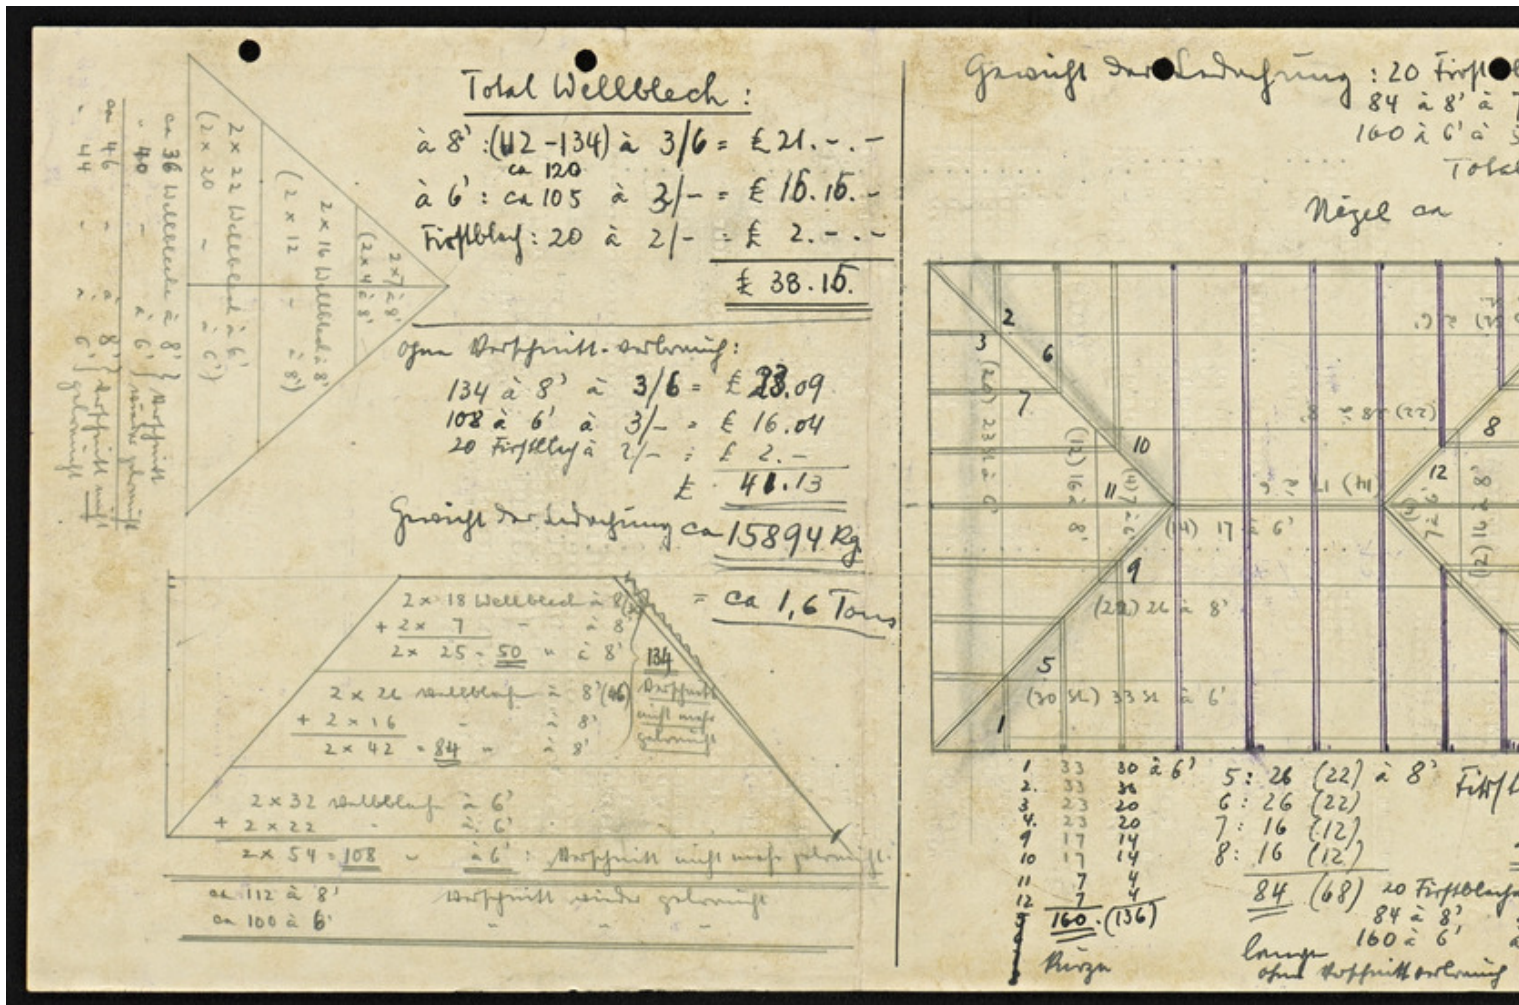 Total Wellblech:
à 8': (112-134) à 3/6 = £ 21.-.-
ca 120
à 6': ca 105 à 3/- = £ 15.15.-
Firstblech: 20 à 2/- = £ 2.-.-
£ 38.15.
ohne Verschnitt-verbrauch:
134 à 8' à 3/6 = £ 23.09
108 à 6' à 3/- = £ 16.04
20 Firstblech à 2/- = £ 2.-
£ 41.13
Gewicht der Bedachung ca 1589 4 Kg
= ca 1,6 Tons
2 x 7 à 8'
(2 x 4 à 8'
2 x 16 Wellblech à 8'
(2 x 12 - à 8')
2 x 22 Wellblech à 6'
(2 x 20 - à 6')
ca 36 Wellbleche à 8' } Verschnitt
" 40 - à 6' } wieder gebraucht
ca 46 - à 8' } Verschnitt nicht
" 44 - " 6' } gebraucht
2 x 18 Wellblech à 8'
+ 2 x 7 - à 8'
2 x 25 = 50 " à 8'
2 x 26 Wellblech à 8' (46)
+ 2 x 16 - à 8'
2 x 42 = 84 " à 8'
134
Verschnitt
nicht mehr
gebraucht
2 x 32 Wellblech à 6'
+ 2 x 22 - à 6'
2 x 54 = 108 - à 6' : Verschnitt nicht mehr gebraucht.
ca 112 à 8' Verschnitt wieder gebraucht
ca 100 à 6' - - -
Gewicht der Bedachung : 20 Firstbl
84 à 8' à 7
160 à 6' à 5
Total
Nägel ca
2
3
6
7
10
11
9
5
1
8
12
(20) 23 St à 6'
(12) 16 à 8'
(4) 7 à 6'
(14) 17 à 6'
(22) 26 à 8'
(30 St) 33 St à 6'
(14) 17 à 6'
(22) 28 à 8'
(12) 16 à 8'
(4) 7 à 6'
1 33 30 à 6'
2. 33 30
3. 23 20
4. 23 20
9 17 14
10 17 14
11 7 4
12 7 4
160. (136)
Kürze
5: 26 (22) à 8'
6: 26 (22)
7: 16 (12)
8: 16 (12)
84 (68)
lange
20 Firstbleche
84 à 8'
160 à 6'
ohne Verschnittverbrauch